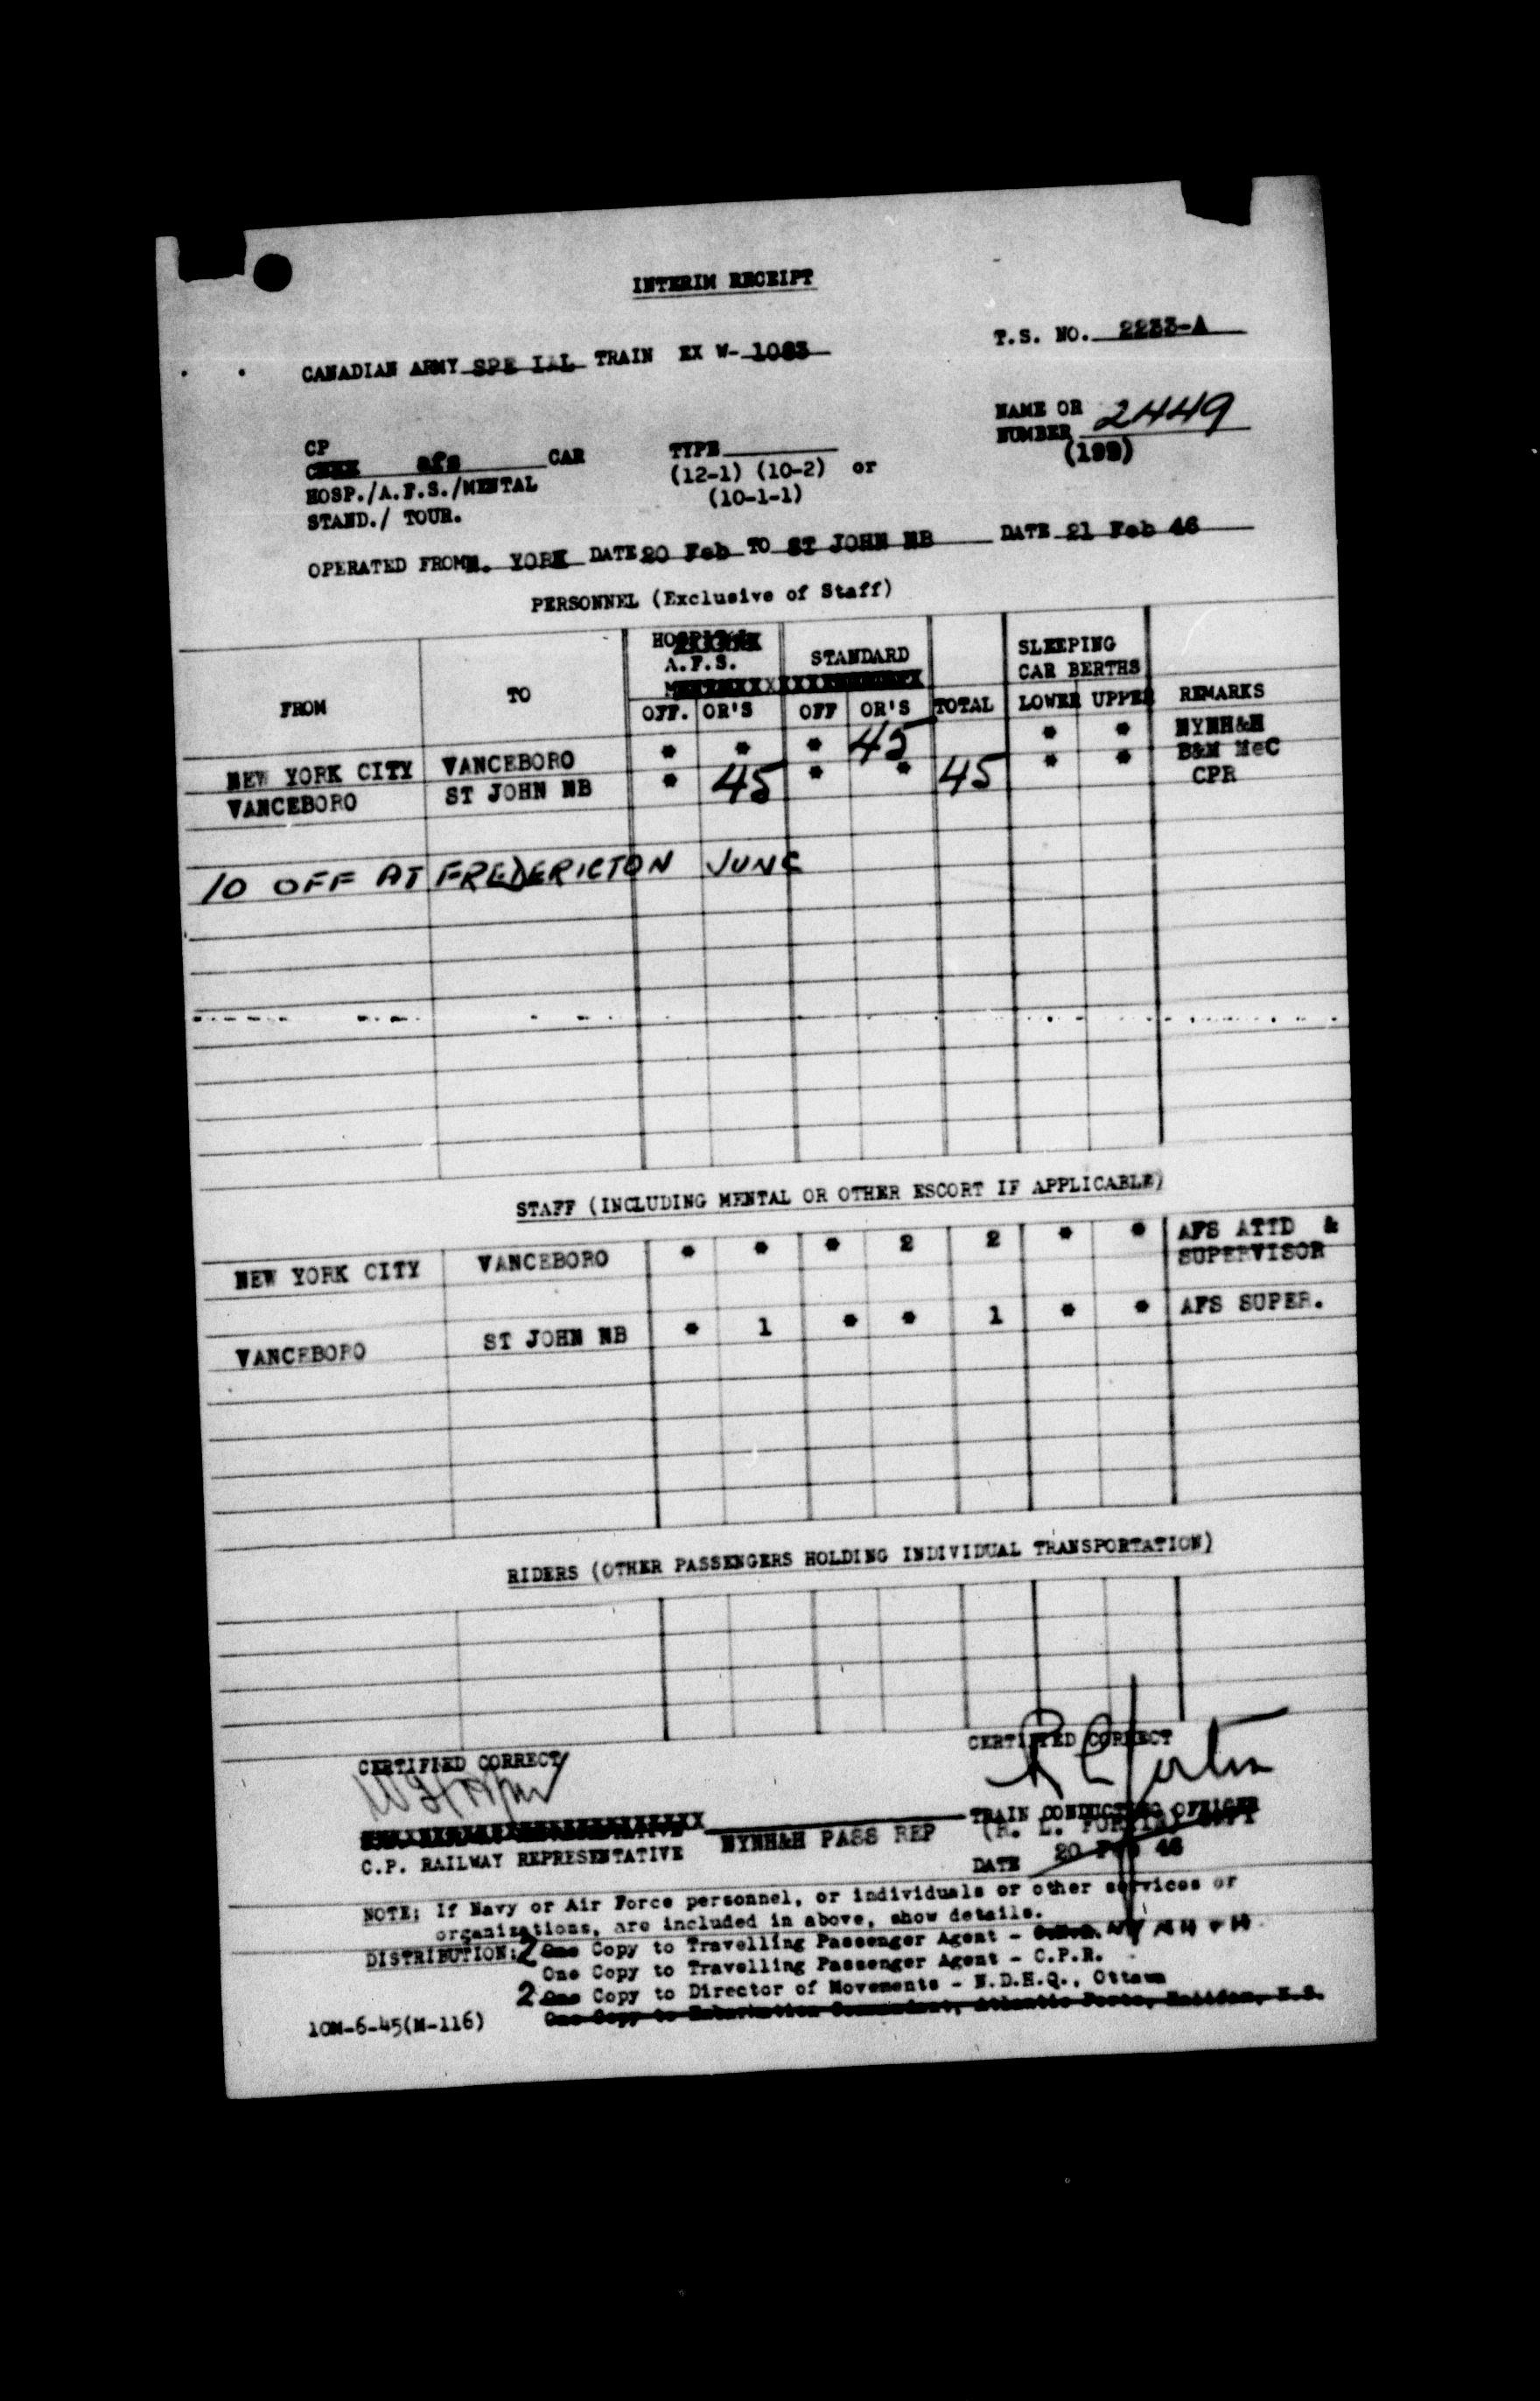 INTERIM RECEIPT
T.S. NO. 2233-A
CANADIAN ARMY SPE IAL TRAIN EX W- 1083
NAME OR
NUMBER 2449
(199)
CP
afs CAR
HOSP./A.F.S./MENTAL
STAND./ TOUR.
TYPE
(12-1) (10-2) or
(10-1-1)
OPERATED FROM N. YORK DATE 20 Feb TO ST JOHN NB DATE 21 Feb 46
PERSONNEL (Exclusive of Staff)
A.F.S. STANDARD SLEEPING CAR BERTHS
FROM TO OFF. OR'S OFF OR'S TOTAL LOWER UPPER REMARKS
NEW YORK CITY VANCEBORO * * * 45 * * NYNH&H
B&M MeC
VANCEBORO ST JOHN NB * 45 * * 45 * * CPR
10 OFF AT FREDERICTON JUNC
STAFF (INCLUDING MENTAL OR OTHER ESCORT IF APPLICABLE)
NEW YORK CITY VANCEBORO * * * 2 2 * * AFS ATTD &
SUPERVISOR
VANCEBORO ST JOHN NB * 1 * * 1 * * AFS SUPER.
RIDERS (OTHER PASSENGERS HOLDING INDIVIDUAL TRANSPORTATION)
CERTIFIED CORRECT
CERTIFIED CORRECT
TRAIN CONDUCTING OFFICER
NYNH&H PASS REP
C.P. RAILWAY REPRESENTATIVE
DATE 20 Feb 46
NOTE: If Navy or Air Force personnel, or individuals or other services or
organizations, are included in above, show details.
DISTRIBUTION: 2 One Copy to Travelling Passenger Agent - NYNH&H
One Copy to Travelling Passenger Agent - C.P.R.
2 One Copy to Director of Movements - N.D.H.Q., Ottawa
One Copy to Embarkation Commandant, Atlantic Ports, Halifax, N.S.
10M-6-45(M-116)